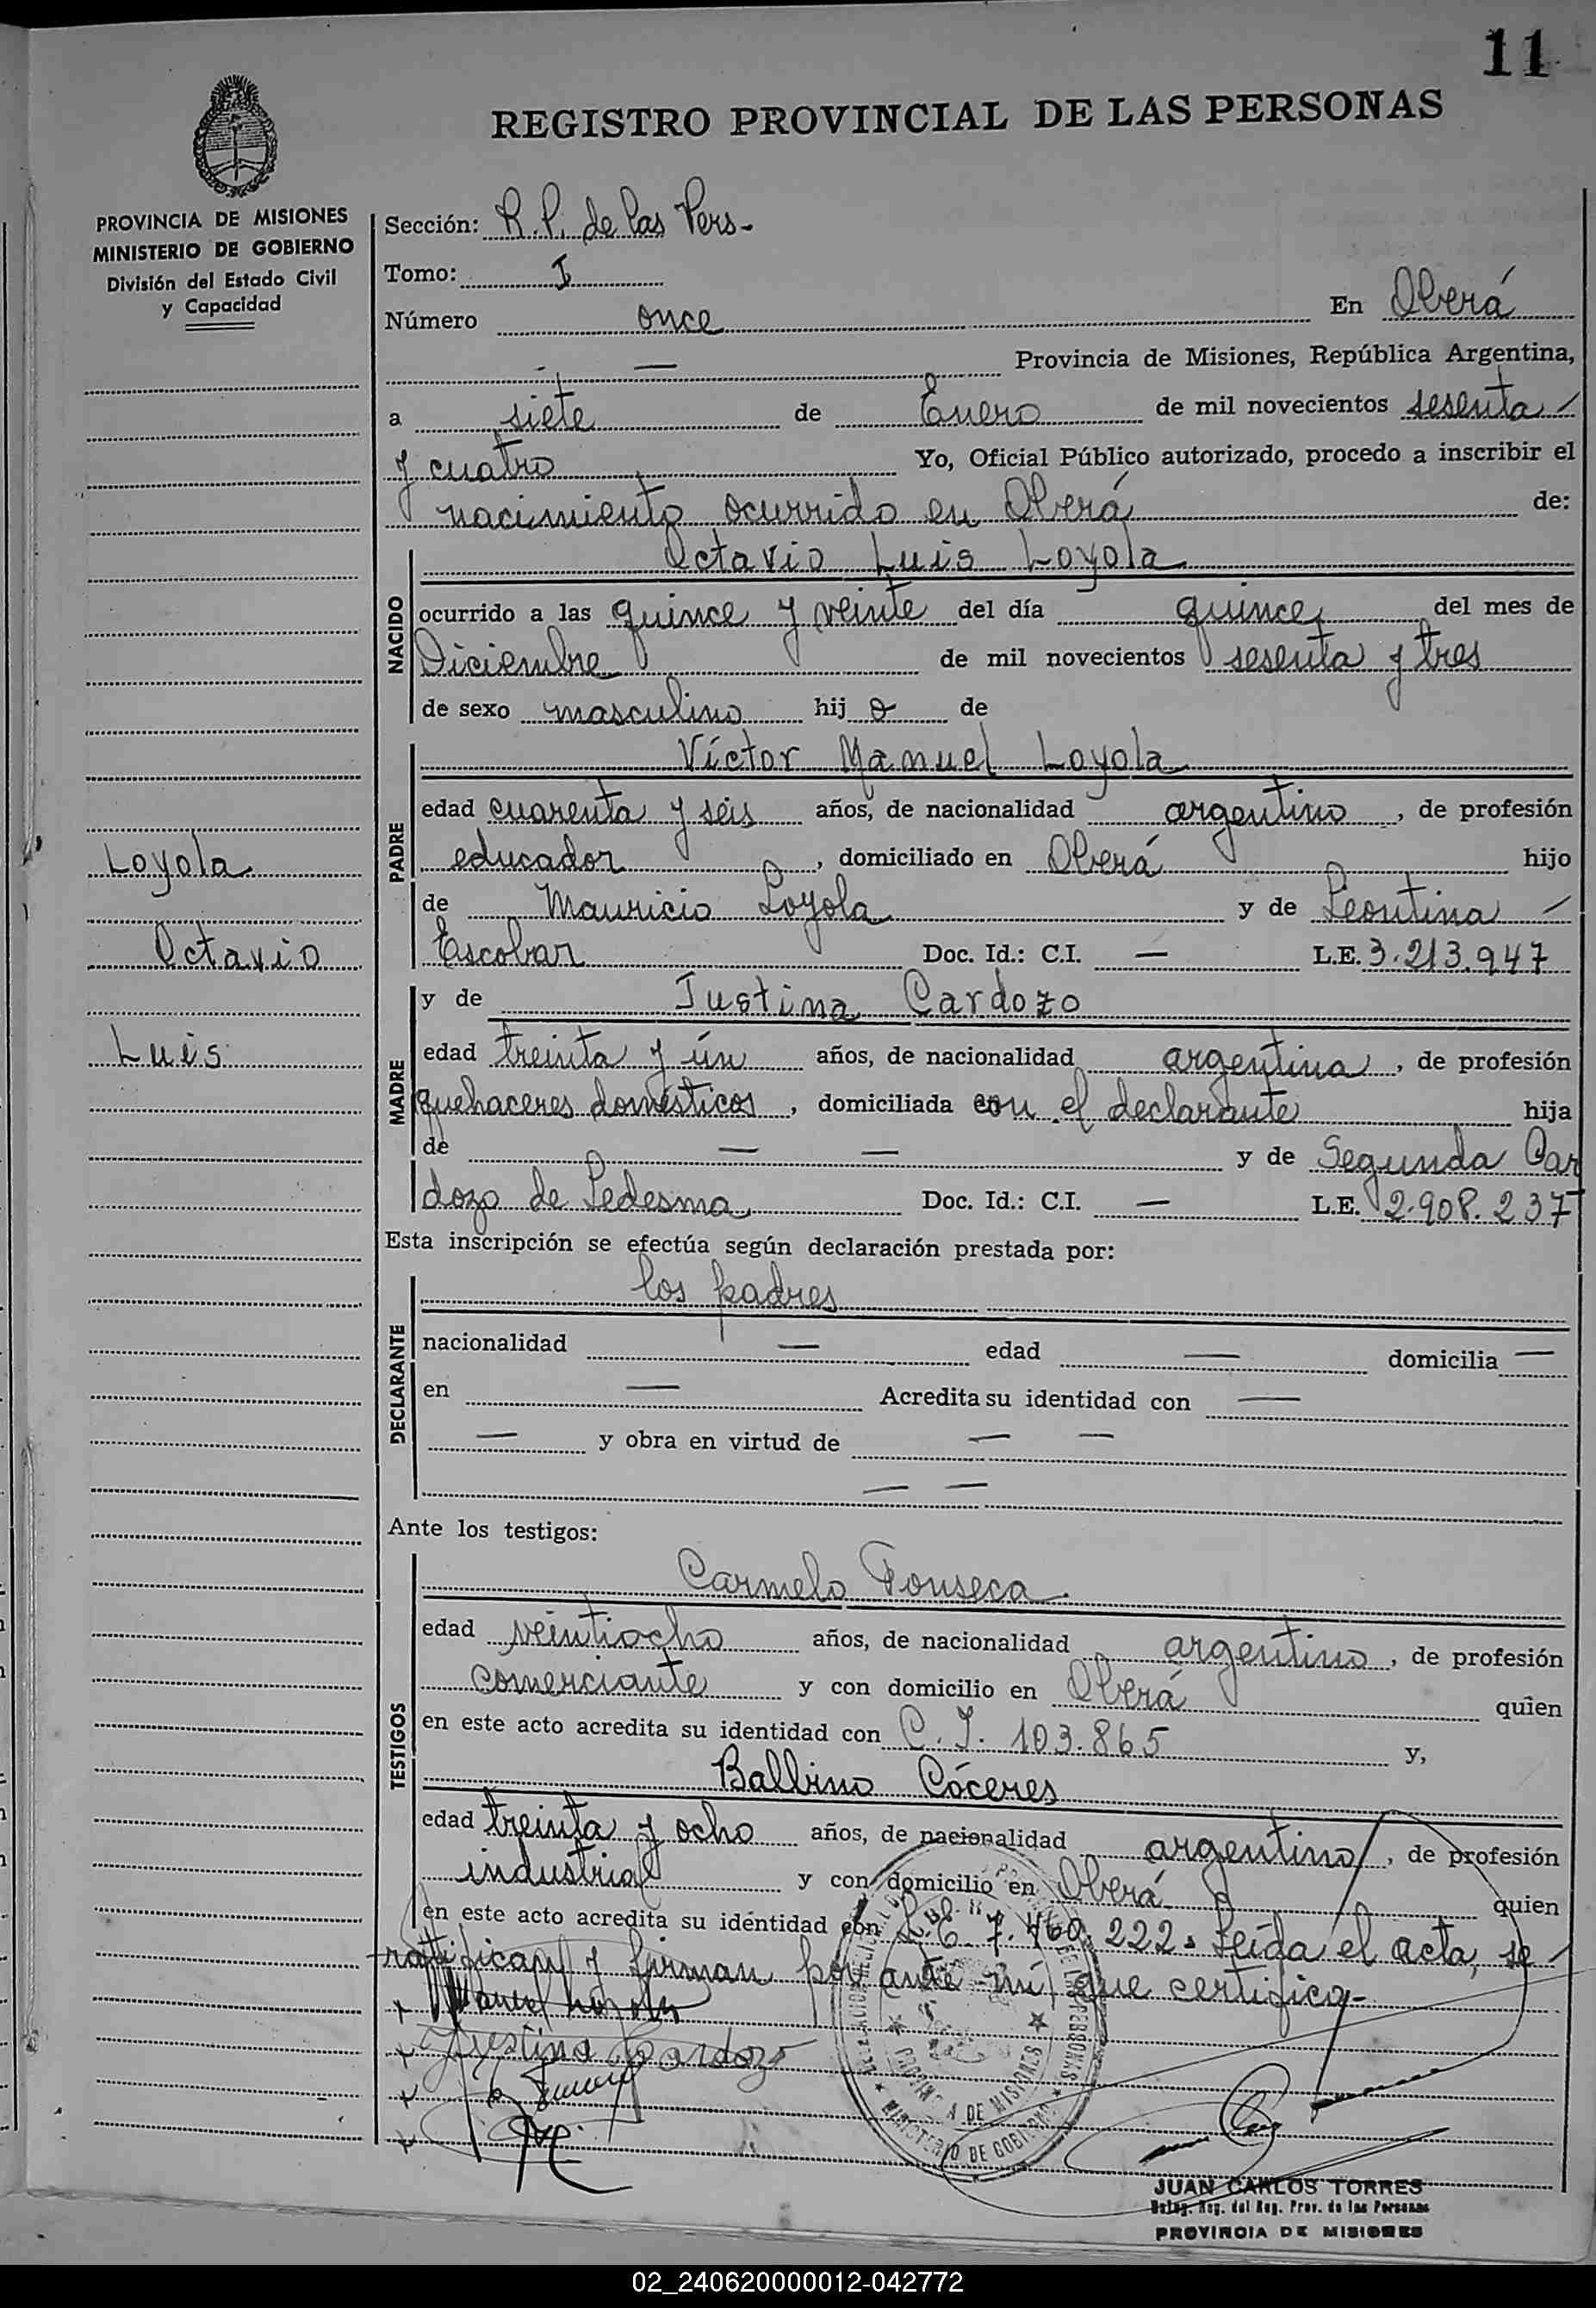 11
REGISTRO PROVINCIAL DE LAS PERSONAS
PROVINCIA DE MISIONES
MINISTERIO DE GOBIERNO
División del Estado Civil
y Capacidad
Sección: R.P. de las Pers-
Tomo: I
Número once En Oberá
— Provincia de Misiones, República Argentina,
a siete de Enero de mil novecientos sesenta
y cuatro Yo, Oficial Público autorizado, procedo a inscribir el
nacimiento ocurrido en Oberá de:
NACIDO
Octavio Luis Loyola
ocurrido a las quince y veinte del día quince del mes de
Diciembre de mil novecientos sesenta y tres
de sexo masculino hij o de
PADRE
Víctor Manuel Loyola
edad cuarenta y seis años, de nacionalidad argentino, de profesión
educador, domiciliado en Oberá hijo
de Mauricio Loyola y de Leontina
Escobar Doc. Id.: C.I. — L.E. 3.213.947
Loyola
Octavio
Luis
MADRE
y de Justina Cardozo
edad treinta y ún años, de nacionalidad argentina, de profesión
quehaceres domésticos, domiciliada con el declarante hija
de — — y de Segunda Car
dozo de Ledesma Doc. Id.: C.I. — L.E. 2.908.237
Esta inscripción se efectúa según declaración prestada por:
DECLARANTE
los padres
nacionalidad — edad — domicilia —
en — Acredita su identidad con —
— y obra en virtud de — —
— —
Ante los testigos:
TESTIGOS
Carmelo Fonseca
edad veintiocho años, de nacionalidad argentino, de profesión
comerciante y con domicilio en Oberá quien
en este acto acredita su identidad con C.I. 103.865 y,
Balbino Cáceres
edad treinta y ocho años, de nacionalidad argentino, de profesión
industrial y con domicilio en Oberá quien
en este acto acredita su identidad con L.E. 7.460.222. Leída el acta, se
ratifican y firman por ante mí que certifico-
Manuel Loyola
Justina Cardozo
PROVINCIA DE MISIONES
MINISTERIO DE GOBIERNO
JUAN CARLOS TORRES
Deleg. Reg. del Reg. Prov. de las Personas
PROVINCIA DE MISIONES
02_240620000012-042772